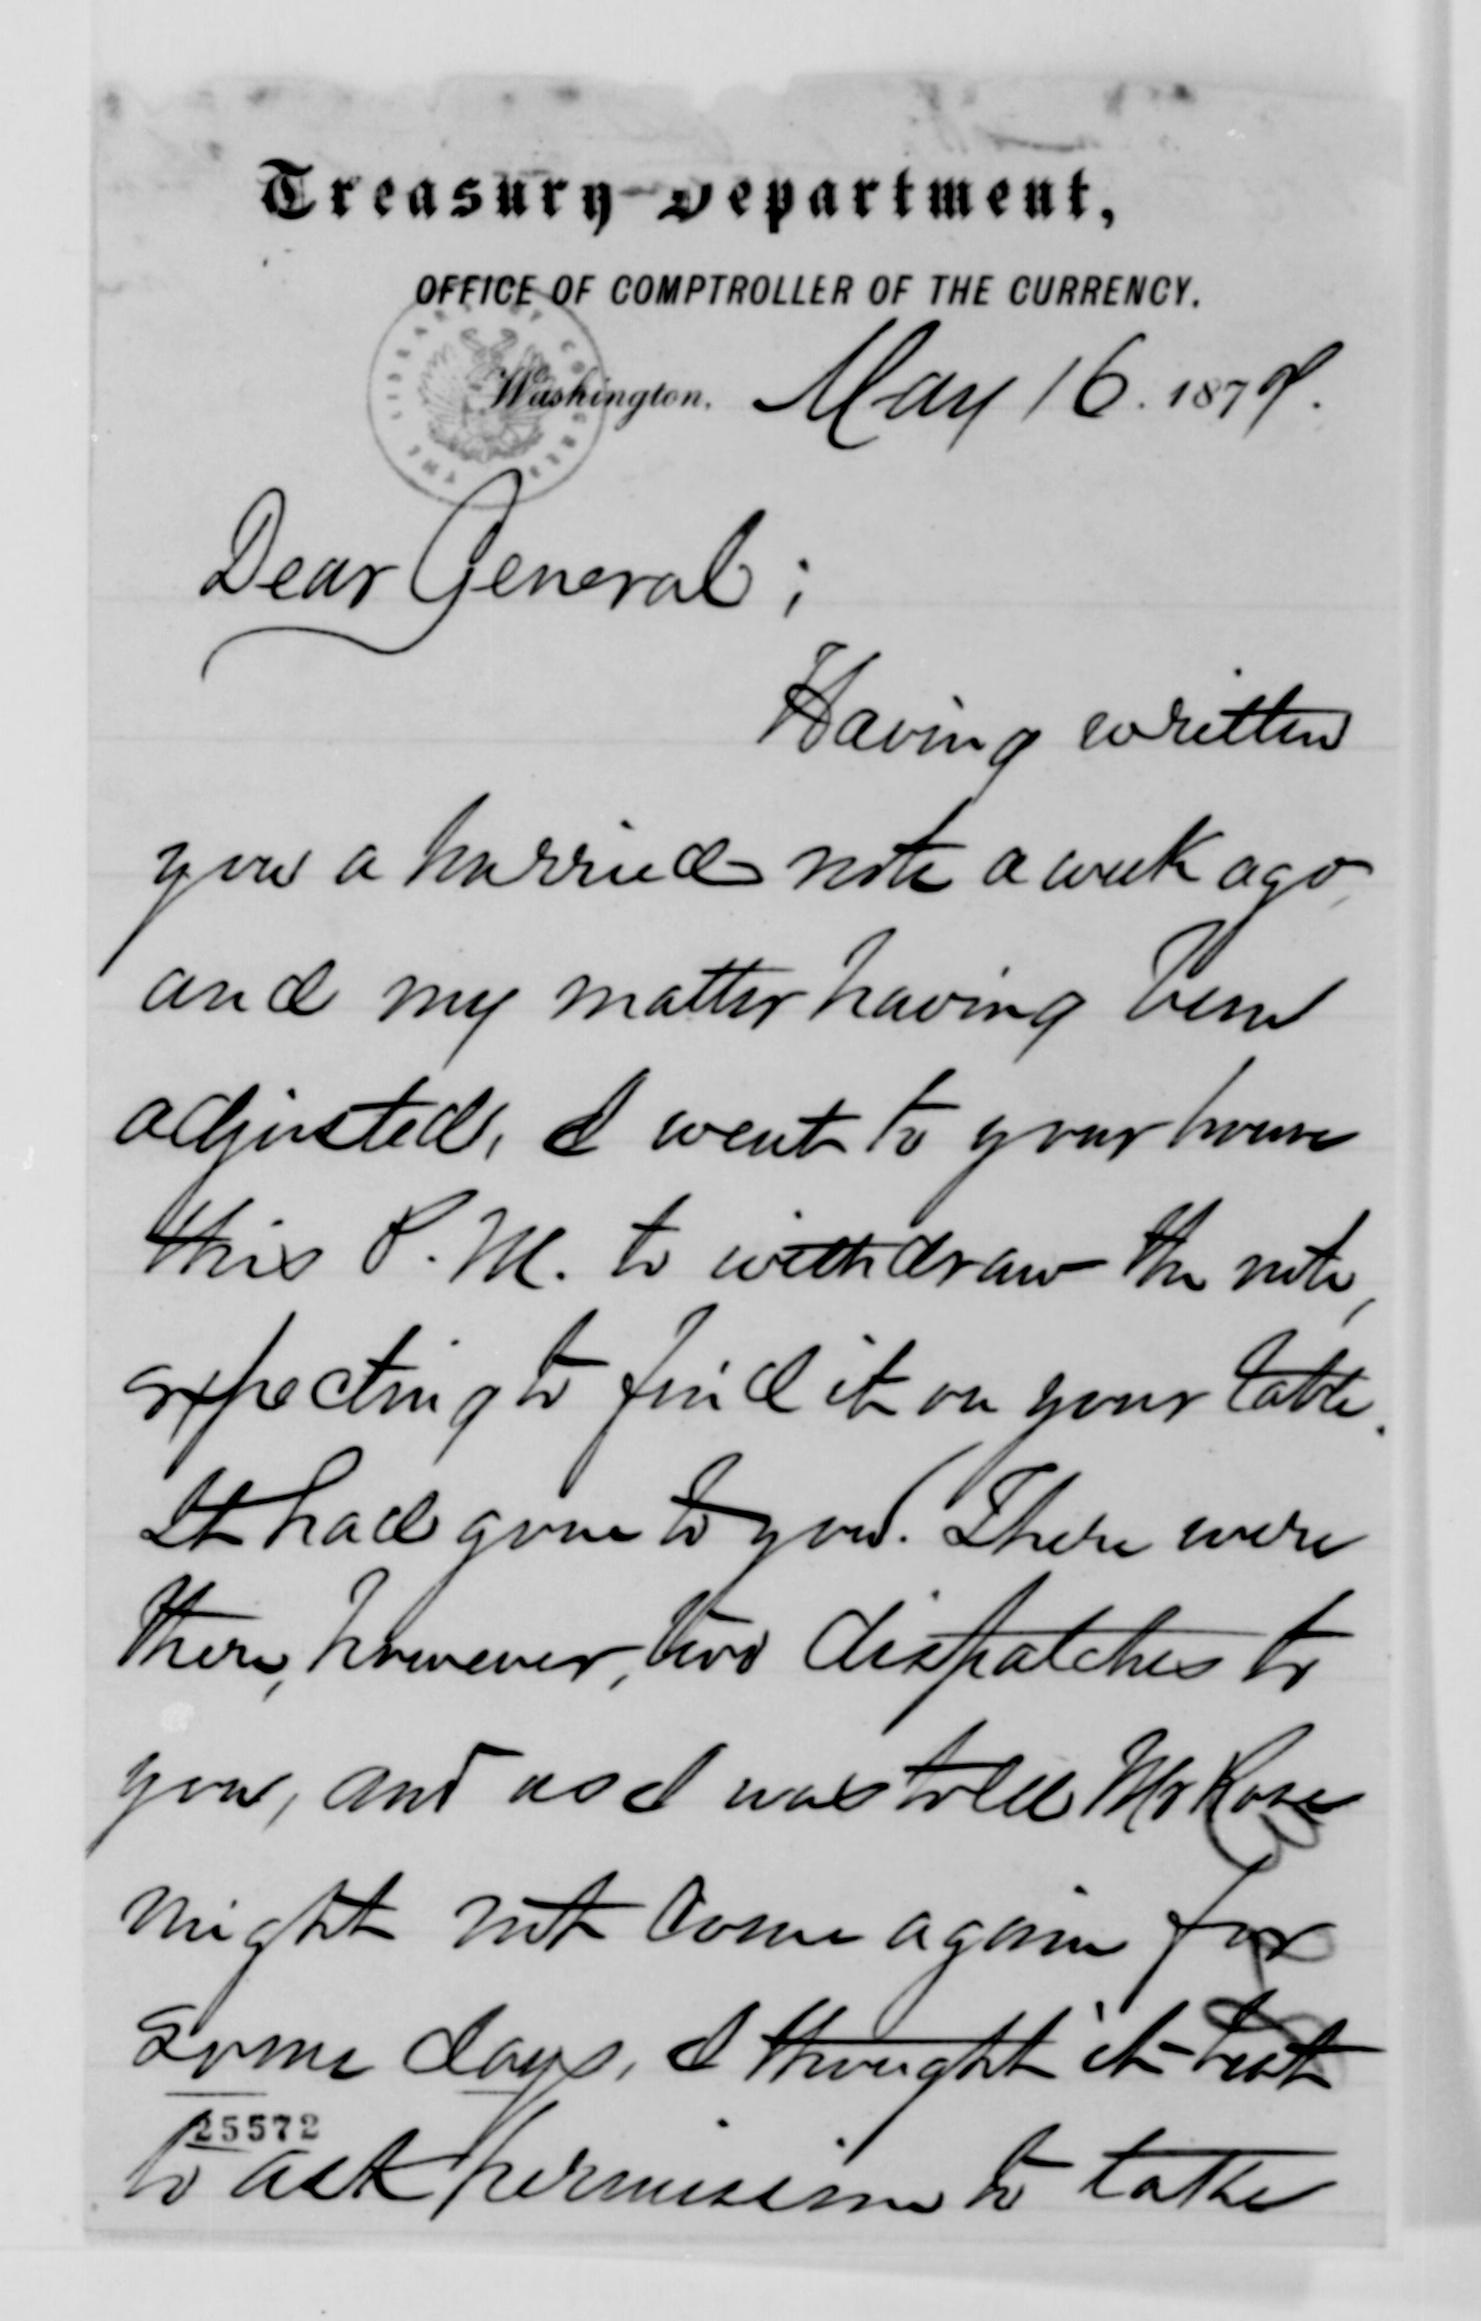 Treasury Department,
OFFICE OF COMPTROLLER OF THE CURRENCY.
THE LIBRARY OF CONGRESS
Washington, May 16. 1879.
Dear General;
Having written
you a hurried note a week ago,
and my matter having been
adjusted, I went to your house
this P.M. to withdraw the note,
expecting to find it on your table.
It had gone to you. There were
there, however, two dispatches to
you, and as I was told Mr Rose
might not come again for
some days, I thought it best
25572
to ask permission to take